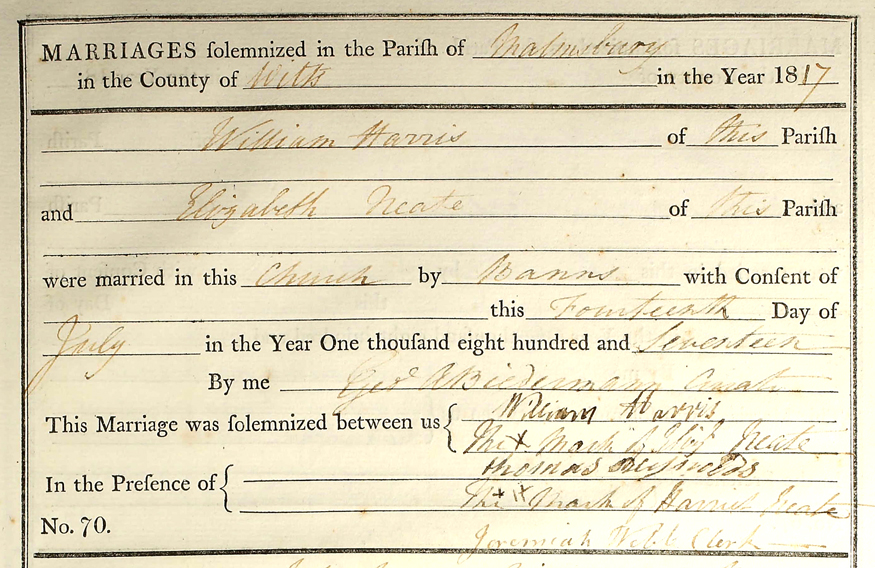 MARRIAGES ſolemnized in the Pariſh of Malmsbury
in the County of Wilts in the Year 1817
William Harris of this Pariſh
and Elizabeth Neate of this Pariſh
were married in this Church by Banns with Conſent of
this Fourteenth Day of
July in the Year One thouſand eight hundred and Seventeen
By me Geo A Biedermann Curate
William Harris
This Marriage was ſolemnized between us
The X Mark of Eliz Neate
Thomas Reynolds
In the Preſence of
The X Mark of Harriet Neate
No. 70.
Jeremiah Webb Clerk